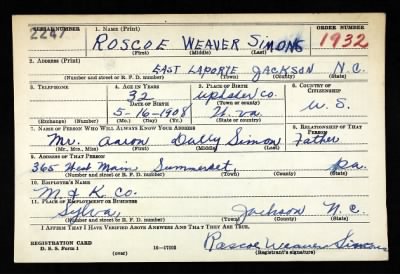 SERIAL NUMBER 1. NAME (Print) ORDER NUMBER
2247 ROSCOE WEAVER SIMONS 1932
(First) (Middle) (Last)
2. ADDRESS (Print)
EAST LAPORTE JACKSON N.C.
(Number and street or R. F. D. number) (Town) (County) (State)
3. TELEPHONE 4. AGE IN YEARS 5. PLACE OF BIRTH 6. COUNTRY OF CITIZENSHIP
32 Upshur Co.
DATE OF BIRTH
5-16-1908 W. Va U.S.
(Exchange) (Number) (Mo.) (Day) (Yr.) (State or country)
7. NAME OF PERSON WHO WILL ALWAYS KNOW YOUR ADDRESS 8. RELATIONSHIP OF THAT PERSON
Mr. Aaron Dolly Simon Father
(Mr., Mrs., Miss) (First) (Middle) (Last)
9. ADDRESS OF THAT PERSON
365 West Main Summerset, Pa.
(Number and street or R. F. D. number) (Town) (County) (State)
10. EMPLOYER'S NAME
M & K Co.
11. PLACE OF EMPLOYMENT OR BUSINESS
Sylva, Jackson N.C.
(Number and street or R. F. D. number) (Town) (County) (State)
I AFFIRM THAT I HAVE VERIFIED ABOVE ANSWERS AND THAT THEY ARE TRUE.
REGISTRATION CARD
D. S. S. Form 1 (over) Roscoe Weaver Simons
(Registrant's signature)